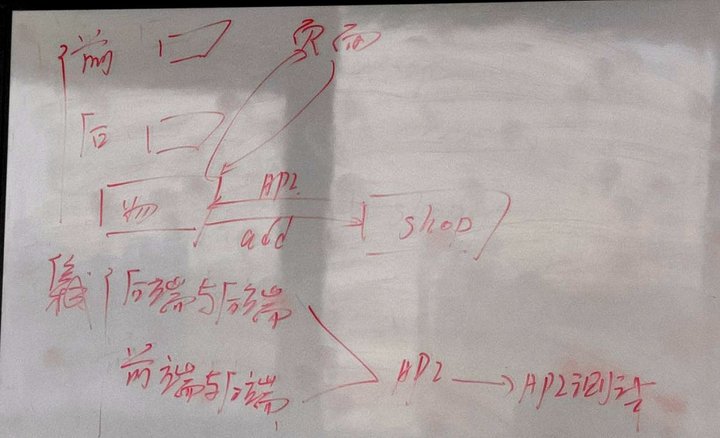 前 页面
后
物 API
add shop
后端与后端
前端与后端 API → API测试